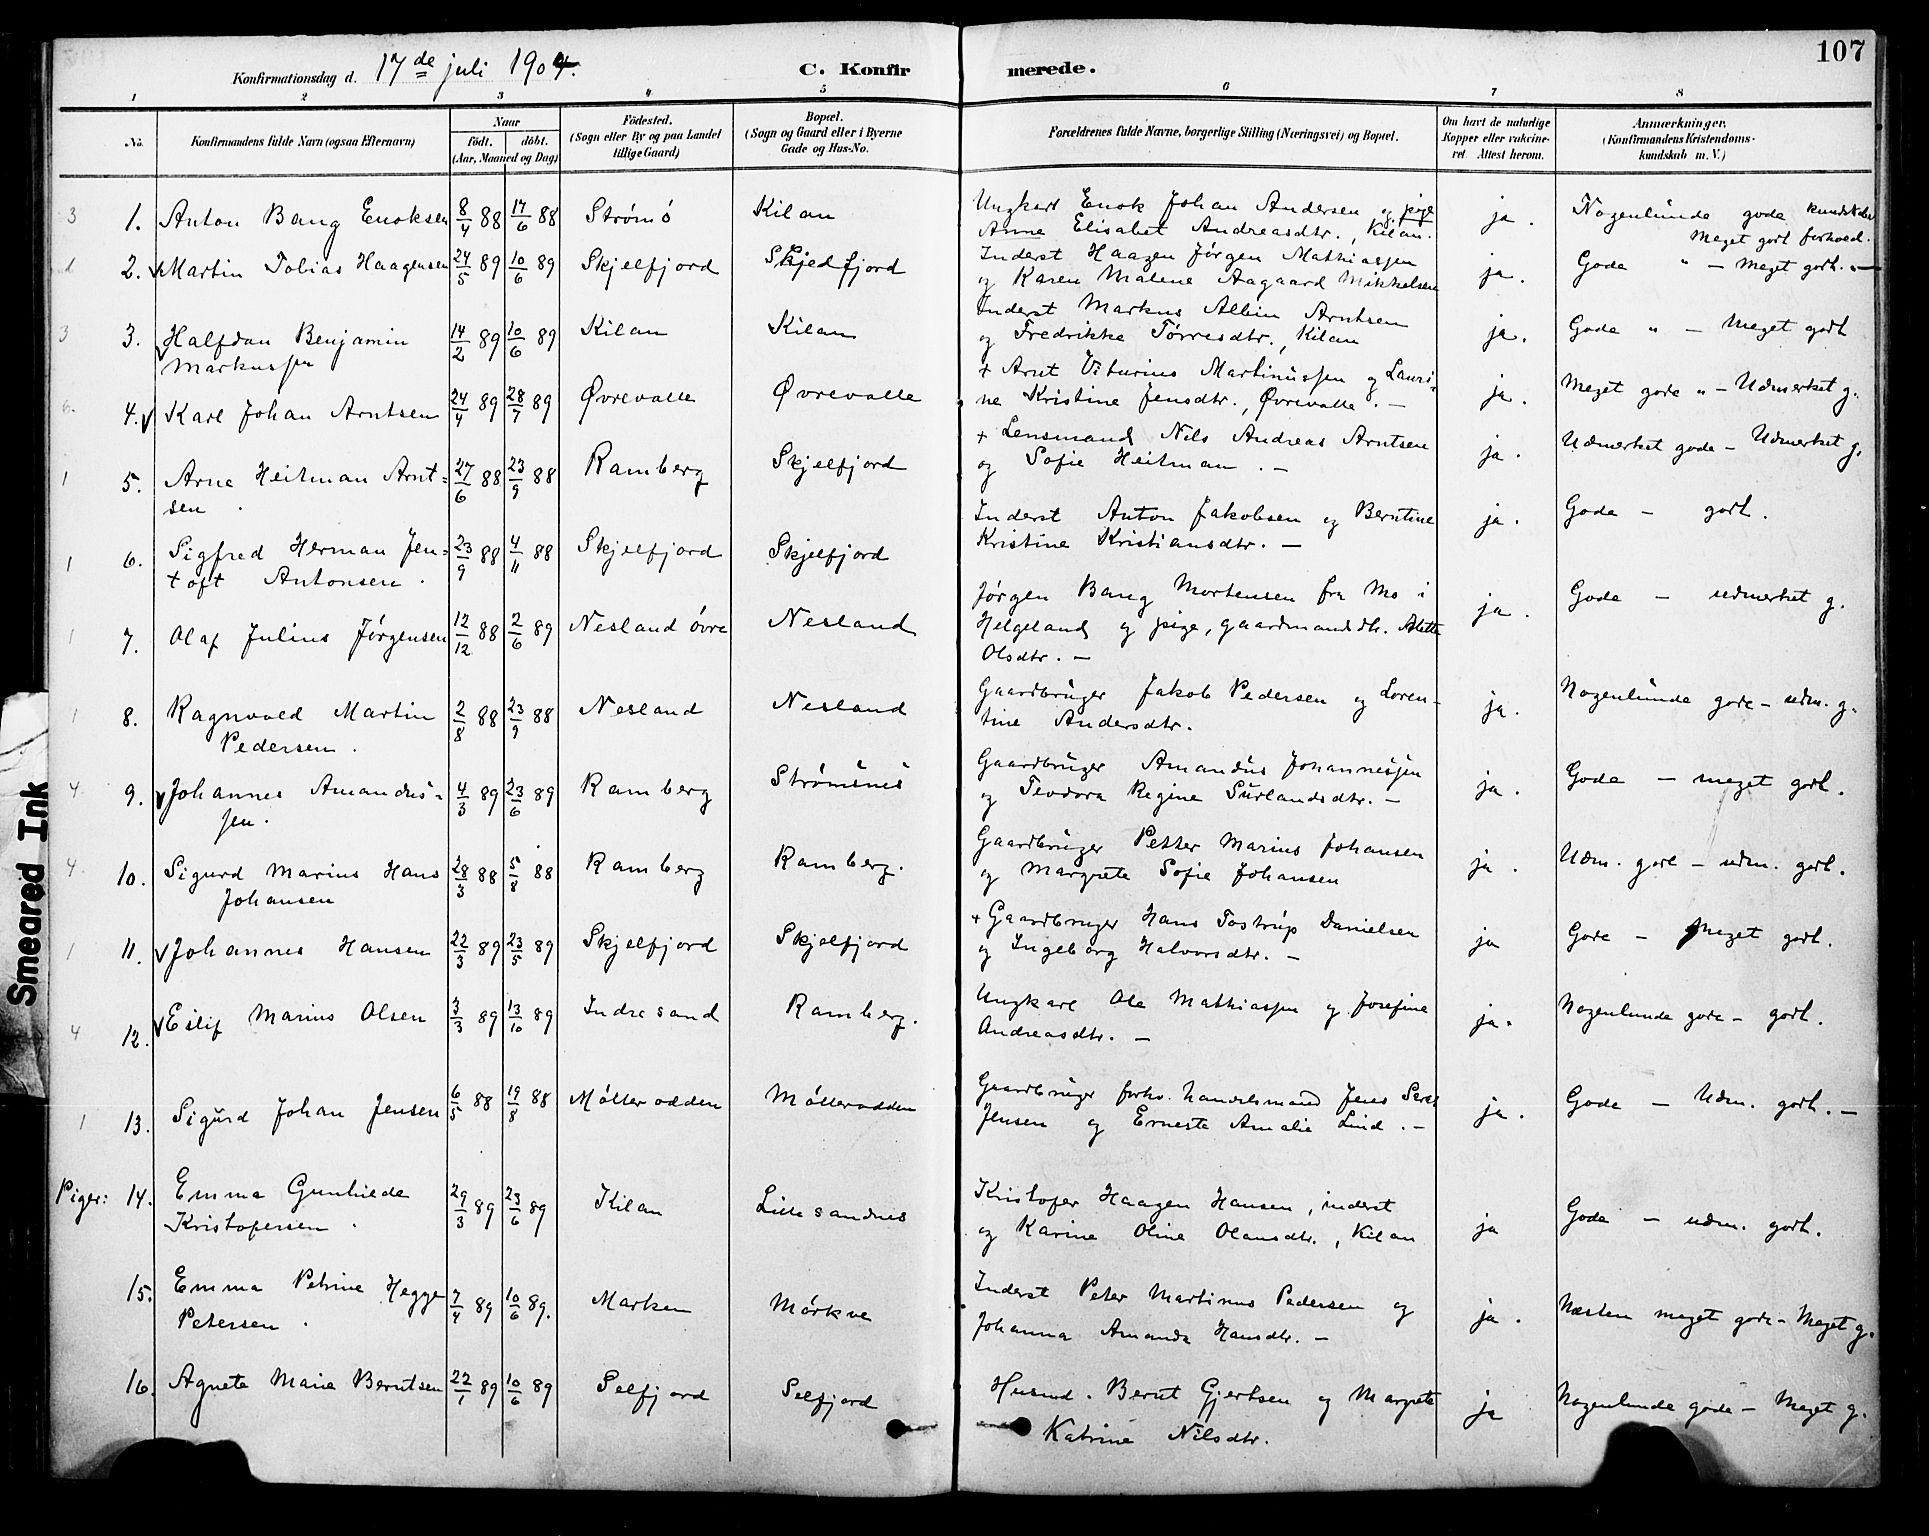 107
Konfirmationsdag d. 17de juli 1904.
C. Konfirmerede.
1 2 3 4 5 6 7 8
No.
Konfirmandens fulde Navn (ogsaa Efternavn)
Naar
født. døbt.
(Aar, Maaned og Dag)
Fødested.
(Sogn eller By og paa Landet
tillige Gaard)
Bopæl.
(Sogn og Gaard eller i Byerne
Gade og Hus-No.
Forældrenes fulde Navne, borgerlige Stilling (Næringsvei) og Bopæl.
Om havt de naturlige
Kopper eller vakcine-
ret. Attest herom.
Anmærkninger.
(Konfirmandens Kristendoms-
kundskab m. V.)
3 1. Anton Bang Enoksen 8/4 88 17/6 88 Strømø Kilan Ungkarl Enok Johan Andersen og pige ja. Nogenlunde gode kundskaber
Anne Elisabet Andreasdtr., Kilan. Meget godt forhold.
1 2. Martin Tobias Haagensen 24/5 89 10/6 89 Skjelfjord Skjelfjord Inderst Haagen Jørgen Mathiassen ja. Gode " – Meget godt. –
og Karen Malene Aagaard Mikkelsen
3 3. Halfdan Benjamin 14/2 89 10/6 89 Kilan Kilan Inderst Markus Albin Arntsen ja. Gode " – Meget godt
Markussen og Fredrikke Tørresdtr., Kilan
6. 4. Karl Johan Arntsen 24/4 89 28/7 89 Øvrevalle Øvrevalle + Arnt Viturius Martinussen og Lauri- ja. Meget gode " – Udmerket g.
ne Kristine Jensdtr., Øvrevalle. –
1 5. Arne Heitman Arnt- 27/6 88 23/9 88 Ramberg Skjelfjord + Lensmand Nils Andreas Arntsen ja. Udmerket gode – Udmerket g.
sen. og Sofie Heitman. –
1 6. Sigfred Herman Jen- 23/9 88 4/11 88 Skjelfjord Skjelfjord Inderst Anton Jakobsen og Berntine ja. Gode – godt.
toft Antonsen. Kristine Kristiansdtr. –
1 7. Olaf Julius Jørgensen 12/12 88 2/6 89 Nesland øvre Nesland Jørgen Bang Mortensen fra Mo i ja. Gode – udmerket g.
Helgeland og pige, gaardmandsdtr. Alette
Olsdtr. –
1 8. Ragnvald Martin 2/8 88 23/9 88 Nesland Nesland Gaardbruger Jakob Pedersen og Loren- ja. Nogenlunde gode – udm. g.
Pedersen. tine Andersdtr.
4 9. Johannes Amandus- 4/3 89 23/6 89 Ramberg Strømsnes Gaardbruger Amandus Johannessen ja. Gode – meget godt.
sen. og Teodora Regine Surlandsdtr. –
4. 10. Sigurd Marius Hans 28/3 88 5/8 88 Ramberg Ramberg. Gaardbruger Petter Marius Johansen ja. Udm. gode – udm. godt.
Johansen og Margrete Sofie Johansen
1 11. Johannes Hansen 22/3 89 23/5 89 Skjelfjord Skjelfjord + Gaardbruger Hans Tostrup Danielsen ja Gode – Meget godt.
og Ingeborg Halvorsdtr. –
4 12. Eilif Marius Olsen 3/3 89 13/10 89 Indresand Ramberg. Ungkarl Ole Mathiassen og Josefine ja. Nogenlunde gode – godt.
Andreasdtr. –
1 13. Sigurd Johan Jensen 6/5 88 19/8 88 Møllerodden Møllerodden Gaardbruger forhv. handelsmand Jens ja. Gode – Udm. godt. –
Jensen og Erneste Amalie Lind. –
Piger: 14. Emma Gunhilde 29/3 89 23/6 89 Kilan Lillesandnes Kristofer Haagen Hansen, inderst ja Gode – udm. godt.
Kristofersen. og Karine Oline Olausdtr., Kilan
15. Emma Petrine Hegge 7/4 89 10/6 89. Marken Mørkve Inderst Peter Martinus Pedersen og ja. Næsten meget gode – Meget g.
Petersen. Johanna Amanda Hansdtr. –
16. Agnete Marie Berntsen 22/1 89 10/6 89 Selfjord Selfjord Husmd. Bernt Gjertsen og Margrete ja Nogenlunde gode – Meget g.
Katrine Nilsdtr.
Smeared Ink